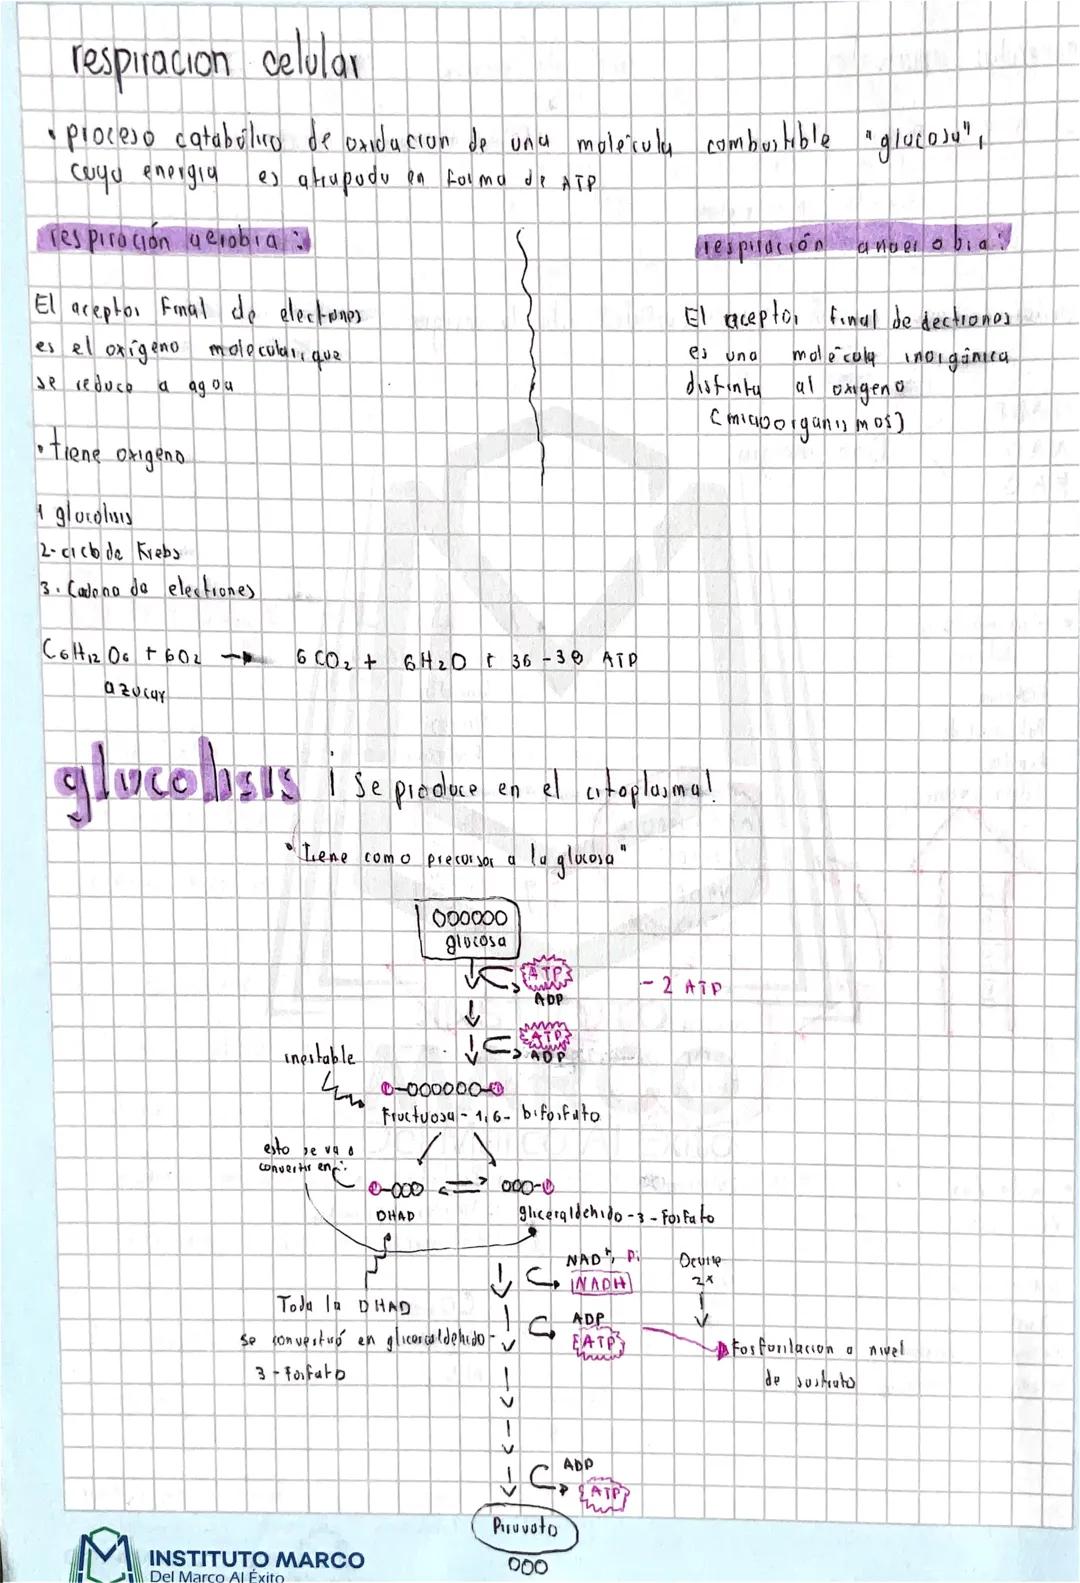 respiracion celular
• proceso catabólico de oxidacion de una molécula combustible "glucosa",
cuya energia es atrapada en forma de ATP
respiración aerobia:
El aceptor Final de electrones
es el oxígeno molecular, que
se reduce a agua
• tiene oxigeno
1 glucolisis
2- ciclo de Krebs
3. Cadena de electrones
respiración anaerobia:
El aceptor final de electrones
es una molécula inorgánica
distinta al oxigeno
(microorganismos)
C6H12O6 + 6O2 → 6CO2 + 6H2O + 36-38 ATP
azucar
glucolisis ¡Se produce en el citoplasma!
• Tiene como precursor a la glucosa"
000000
glucosa
ATP
ADP
- 2 ATP
ATP
ADP
inestable
000000
Fructuosa - 1,6- bifosfato
esto se va a
convertir en:
000
000
DHAD
gliceraldehido-3-Fosfato
NAD+, Pi
NADH
Ocurre
2x
Toda la DHAD
se convertirá en gliceraldehido-
3-Fosfato
ADP
ATP
Fosforilacion a nivel
de sustrato
ADP
ATP
Piruvato
000
INSTITUTO MARCO
Del Marco Al Éxito